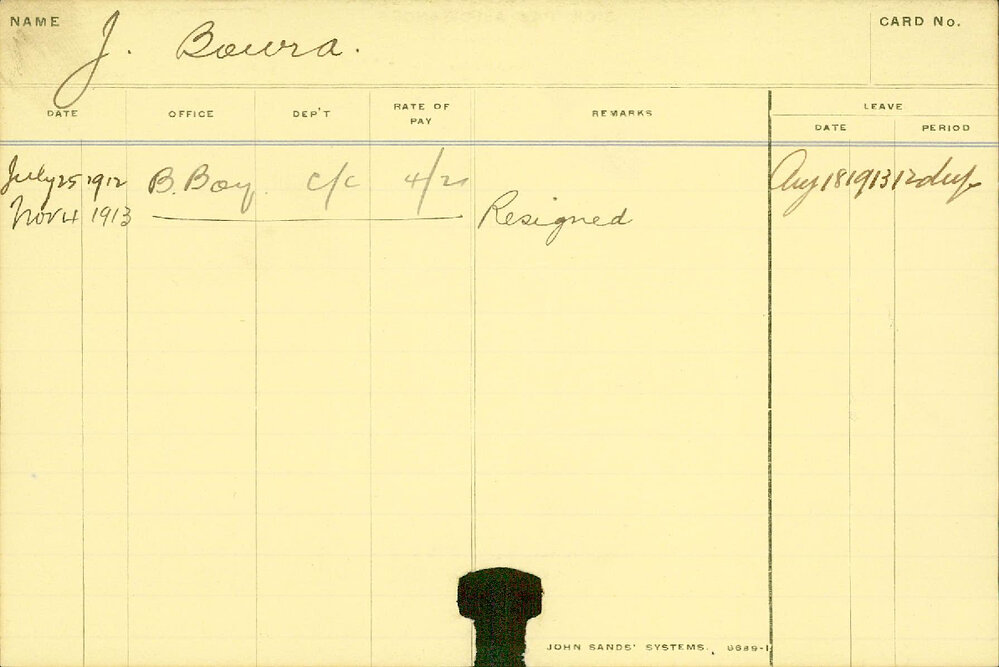 NAME J. Bowra. CARD No.
DATE OFFICE DEP'T RATE OF PAY REMARKS LEAVE
DATE PERIOD
July 25 1912 B. Boy. c/c Aug 18 1913 12 days
Nov 4 1913 Resigned
JOHN SANDS' SYSTEMS.